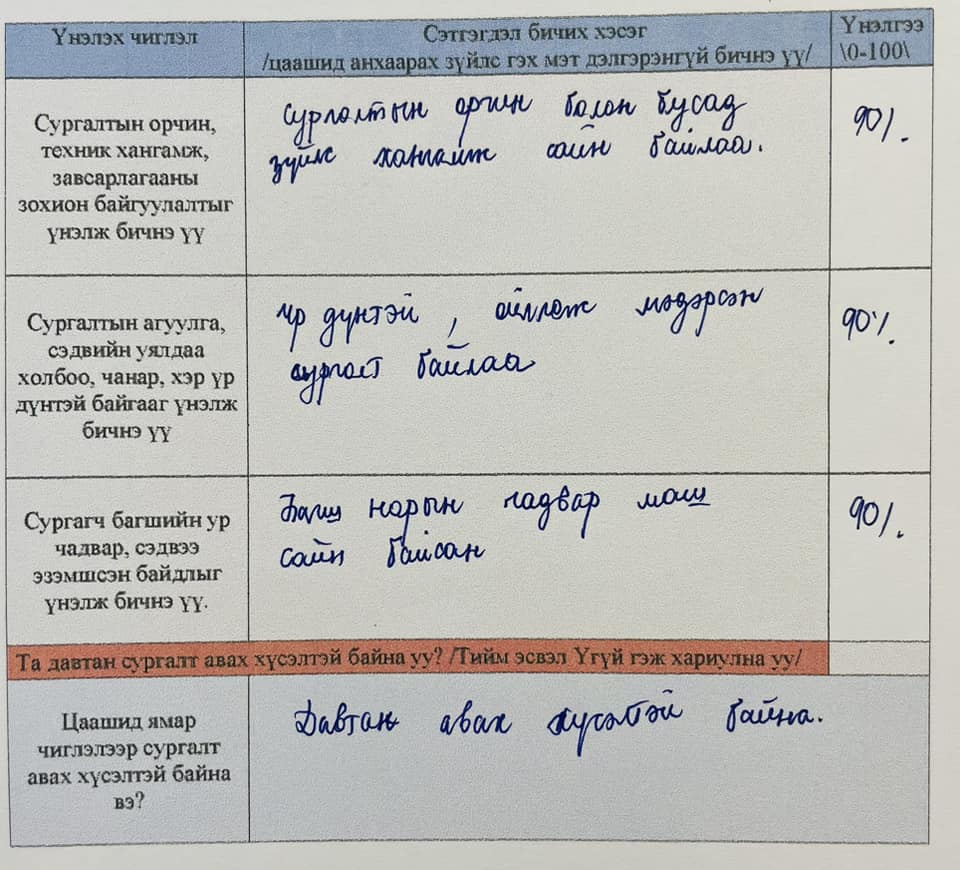 Үнэлэх чиглэл
Сэтгэгдэл бичих хэсэг
/цаашид анхаарах зүйлс гэх мэт дэлгэрэнгүй бичнэ үү/
Үнэлгээ
\0-100\
Сургалтын орчин,
техник хангамж,
завсарлагааны
зохион байгуулалтыг
үнэлж бичнэ үү
Сургалтын орчин болон бусад
зүйлс хангамж сайн байлаа.
90%.
Сургалтын агуулга,
сэдвийн уялдаа
холбоо, чанар, хэр үр
дүнтэй байгааг үнэлж
бичнэ үү
Үр дүнтэй, ойлгож мэдэрсэн
сургалт байлаа
90%.
Сургагч багшийн ур
чадвар, сэдвээ
эзэмшсэн байдлыг
үнэлж бичнэ үү.
Багш нарын чадвар маш
сайн байсан
90%.
Та давтан сургалт авах хүсэлтэй байна уу? /Тийм эсвэл Үгүй гэж хариулна уу/
Цаашид ямар
чиглэлээр сургалт
авах хүсэлтэй байна
вэ?
Давтан авах хүсэлтэй байна.